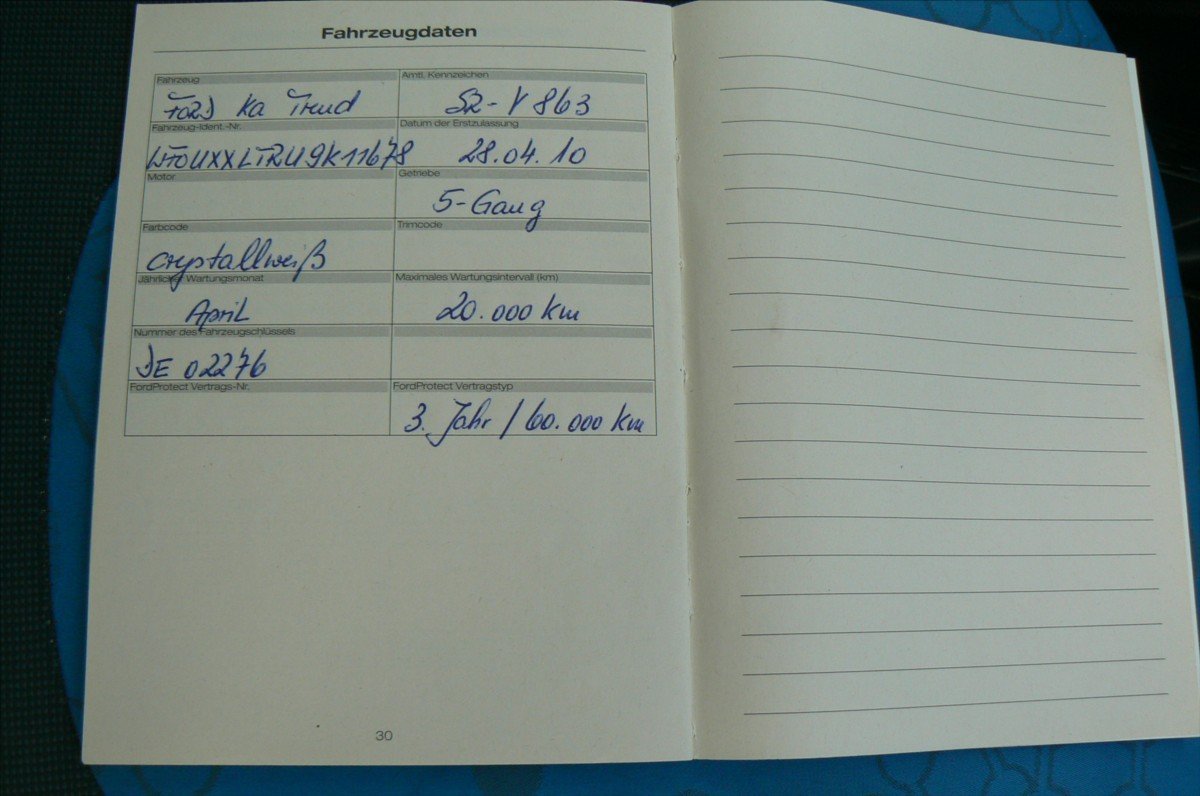 Fahrzeugdaten
Fahrzeug Amtl. Kennzeichen
Ford Ka Trend SR-V 863
Fahrzeug-Ident.-Nr. Datum der Erstzulassung
WFOUXXLTRU9K11678 28.04.10
Motor Getriebe
5-Gang
Farbcode Trimcode
crystallweiß
Jährlicher Wartungsmonat Maximales Wartungsintervall (km)
April 20.000 km
Nummer des Fahrzeugschlüssels
DE 02276
FordProtect Vertrags-Nr. FordProtect Vertragstyp
3. Jahr / 60.000 km
30